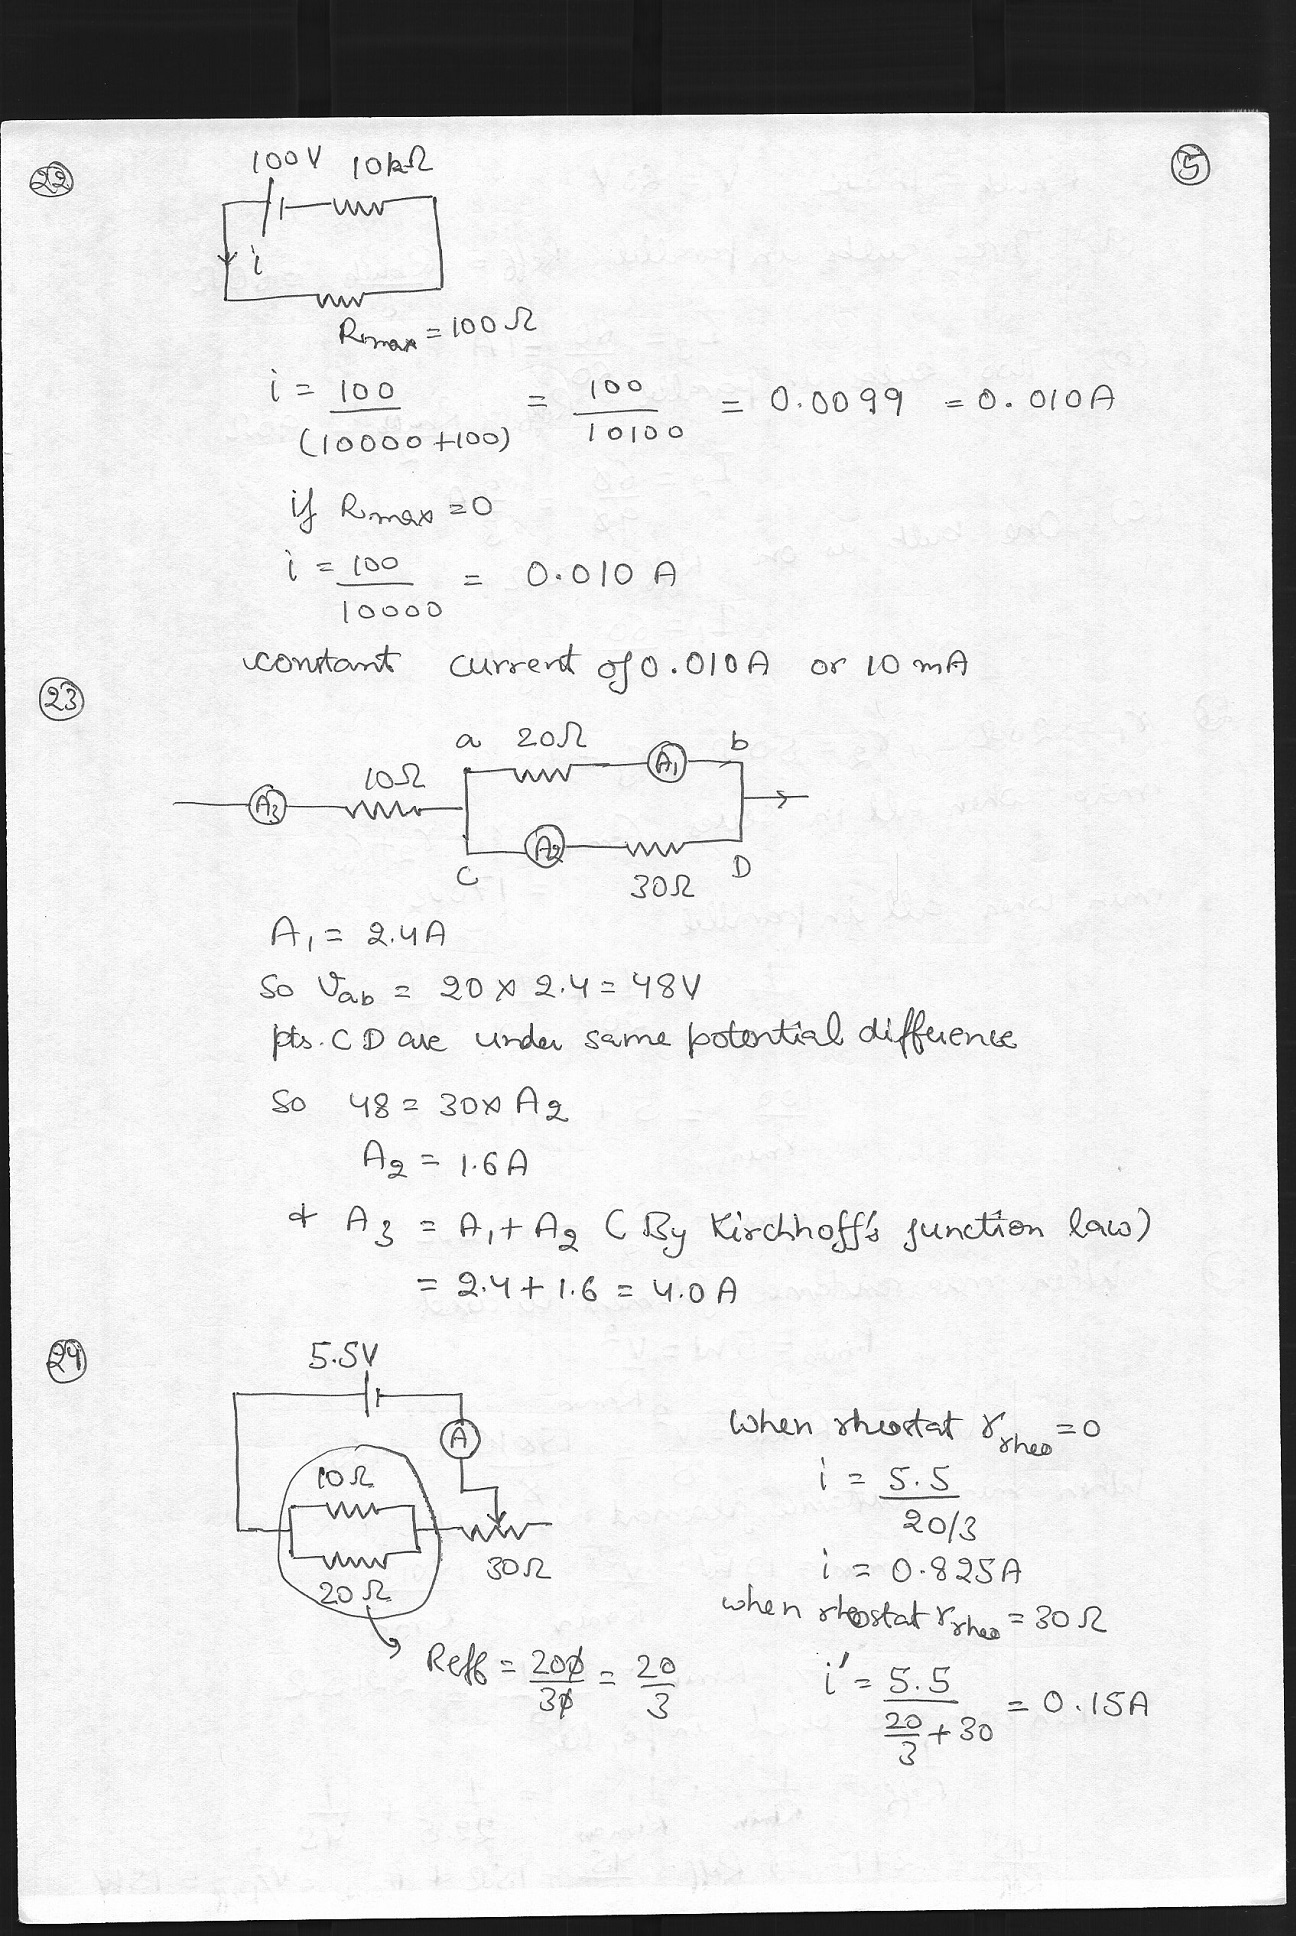 22
5
100V 10kΩ
i
Rmax = 100Ω
i = 100/(10000+100) = 100/10100 = 0.0099 = 0.010A
if Rmax = 0
i = 100/10000 = 0.010 A
constant current of 0.010A or 10 mA
23
a 20Ω A1 b
A3 10Ω
C A2 30Ω D
A1 = 2.4A
So Vab = 20 × 2.4 = 48V
pts. C D are under same potential difference
So 48 = 30 × A2
A2 = 1.6A
+ A3 = A1 + A2 (By Kirchhoff's junction law)
= 2.4 + 1.6 = 4.0A
24
5.5V
A
10Ω
20Ω
30Ω
Reff = 200/30 = 20/3
When rheostat rrheo = 0
i = 5.5/20/3
i = 0.825A
when rheostat rrheo = 30Ω
i' = 5.5/(20/3 + 30) = 0.15A